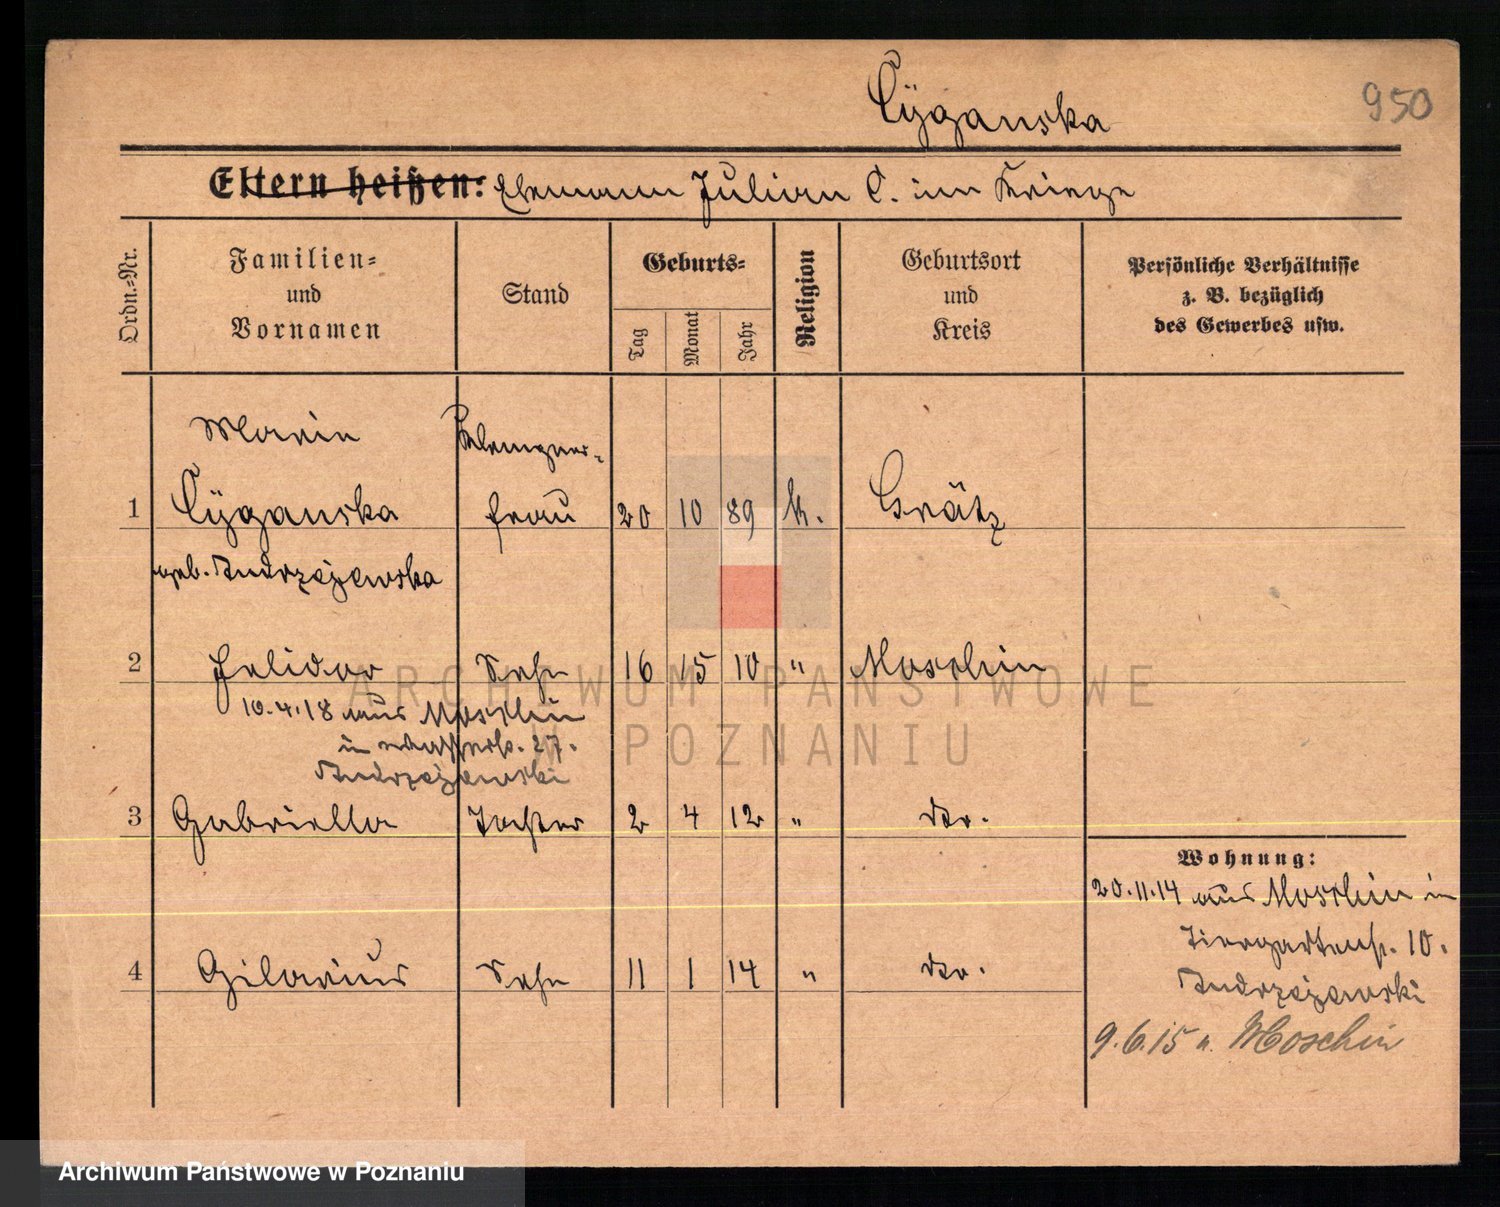 Cÿganska
950
Eltern heißen: Ehemann Julian C. im Kriege
Ordn.-Nr.
Familien-
und
Vornamen
Stand
Geburts-
Tag
Monat
Jahr
Religion
Geburtsort
und
Kreis
Persönliche Verhältnisse
z. B. bezüglich
des Gewerbes usw.
Maria
1 Cÿganska frau 20 10 89 k. Grätz
geb. Andrzejewska
2 Felidor Sohn 16 15 10 " Moschin
10.4.18 aus Moschin
in 27.
Andrzejewski
3 Gabriella Tochter 2 4 12 " do.
Wohnung:
20.11.14 aus Moschin in
Tiergartenstr. 10.
4 Gilarius Sohn 11 1 14 " do.
Andrzejewski
9.6.15 n. Moschin
ARCHIWUM PAŃSTWOWE
W POZNANIU
Archiwum Państwowe w Poznaniu